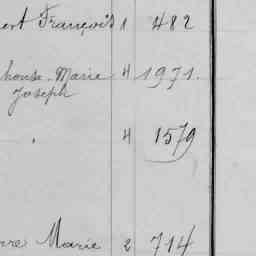 bert François 1 482
house Marie 4 1971.
Joseph
4 1579
rre Marie 2 714